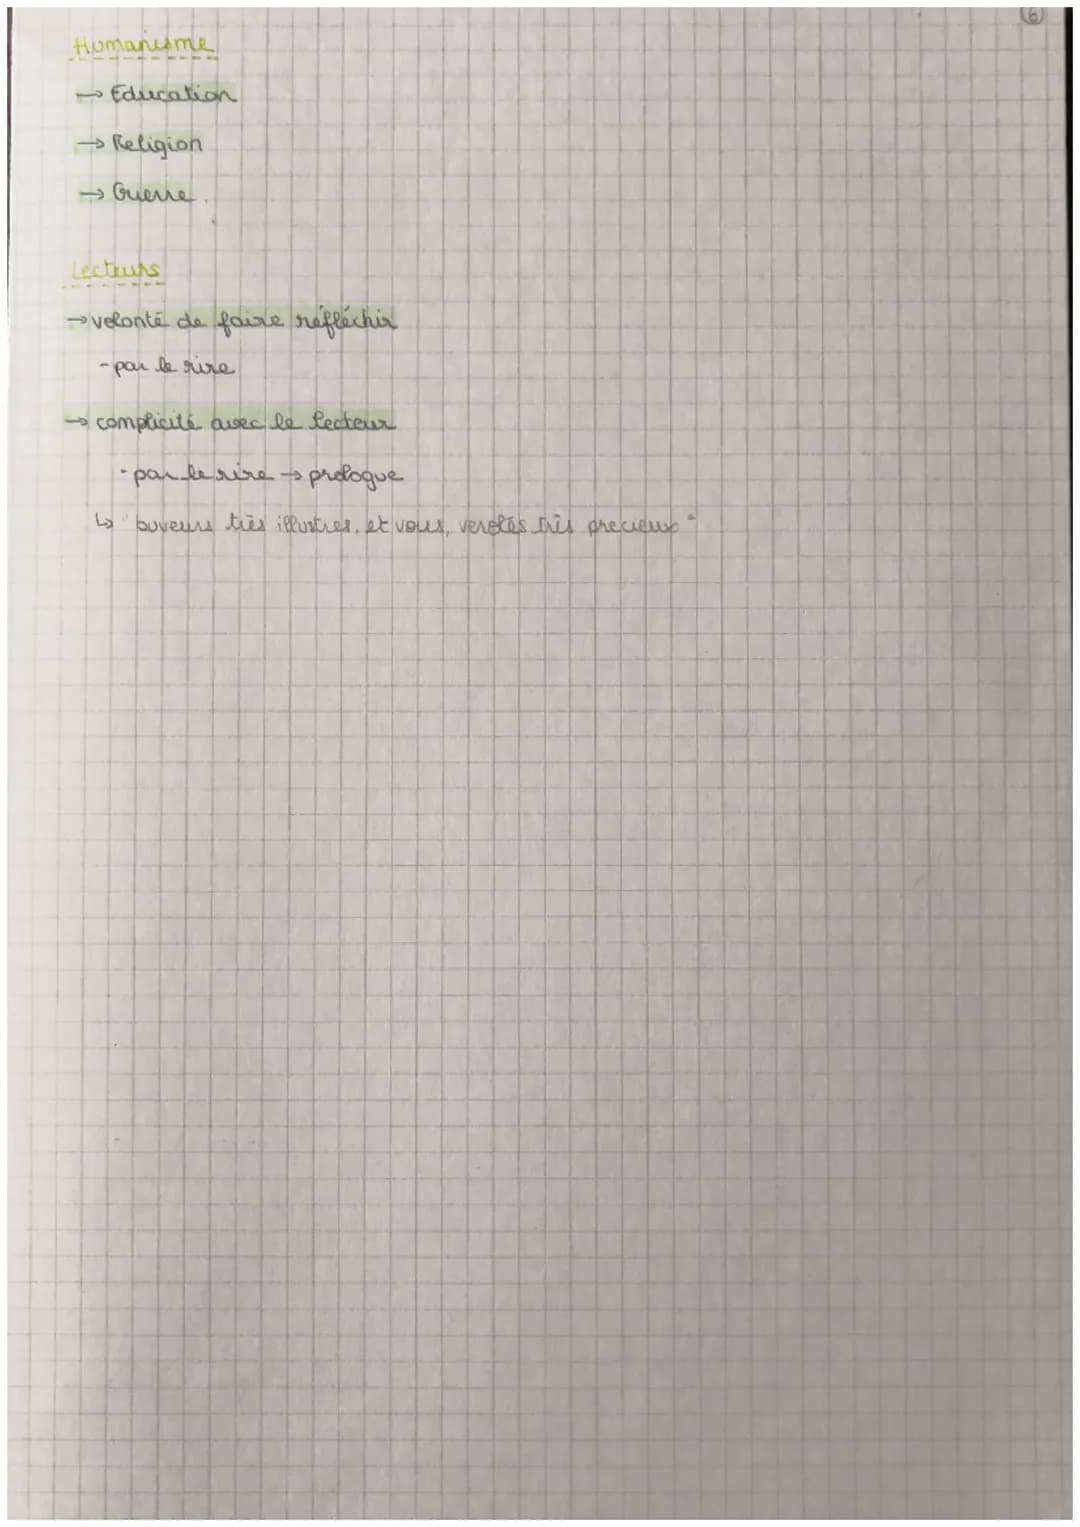 6
Humanisme
→ Education
→ Religion
→ Guerre.
Lecteurs
→ volonté de faire réfléchir
- par le rire
→ complicité avec le lecteur
- par le rire → prologue
↳ "buveurs très illustres, et vous, verolés très precieux"